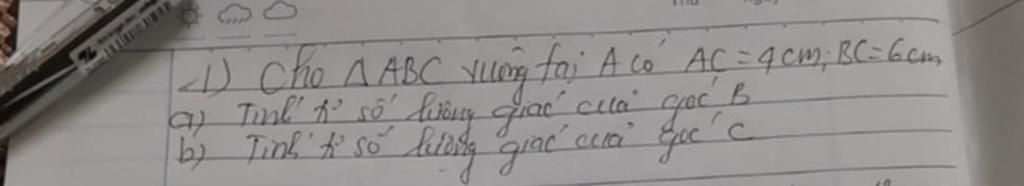 1) Cho △ABC vuông tại A có AC = 4cm; BC = 6cm
a) Tính tỉ số lượng giác của góc B
b) Tính tỉ số lượng giác của góc C